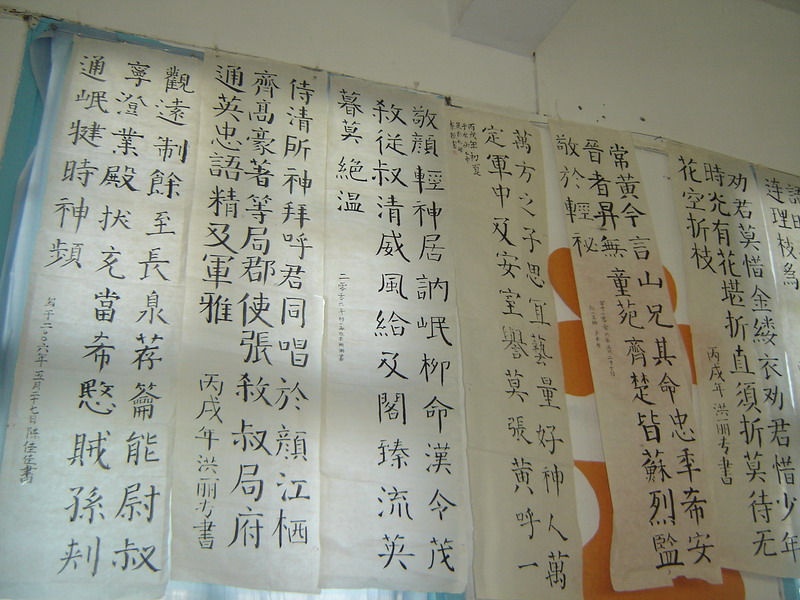 連理枝為
劝君莫惜金缕衣劝君惜少年
時光有花堪折直須折莫待无
花空折枝
丙戌年洪丽芳書
常黃令言山兄其命忠季希安
晉者昇無童苑齊楚皆蘇烈監
敬於輕祕
萬方之子思宜藝量好神人萬
定軍申及安室譽莫張黃呼一
丙戌年初夏
敬顏輕神居訥岷柳命漢令茂
敘從叔清威風給及閣臻流英
暮莫絕溫
侍清所神拜呼君同唱於顏江栖
齊高豪著等局郡使張敘叔局府
通英忠語精及軍雅
丙戌年洪丽芳書
觀遠制餘至長泉荐籥能尉叔
寧澄業殿狀充當希愍賊孫刾
通岷犍時神頻
写于二00六年五月二十七日陈任任書